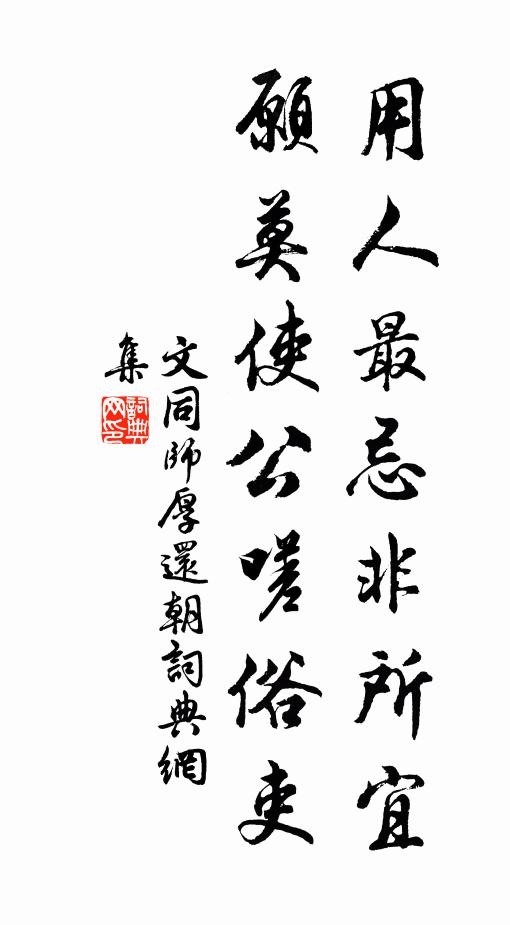 用人最忌非所宜
願莫使公嗟俗吏
文同師厚還朝詞典網
集
詞典
网印